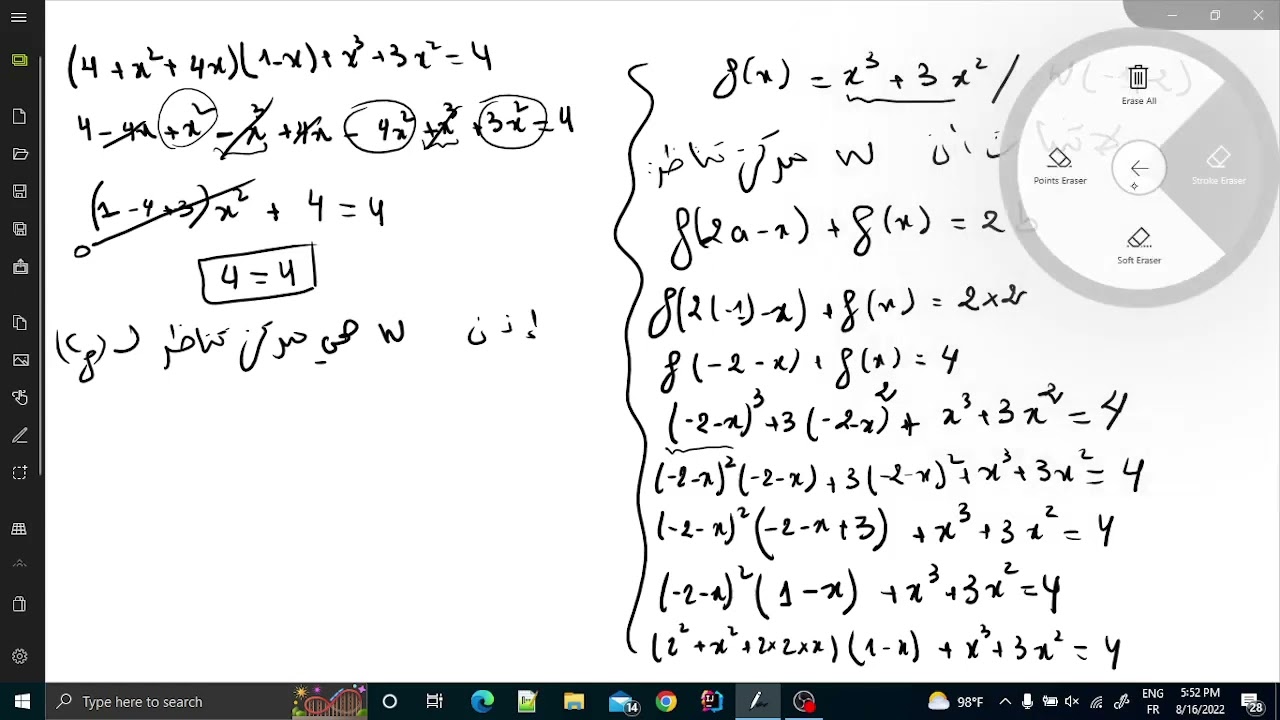 (4 + x² + 4x)(1-x) + x³ + 3x² = 4
4 - 4x + x² - x³ + 4x - 4x² + x³ + 3x² = 4
(1 - 4 + 3)x² + 4 = 4
0
4 = 4
إذن W هي مركز تناظر لـ (Cf)
f(x) = x³ + 3x² /
W مركز تناظر:
f(2a - x) + f(x) = 2
f(2(-1) - x) + f(x) = 2×2
f(-2 - x) + f(x) = 4
(-2-x)³ + 3(-2-x)² + x³ + 3x² = 4
(-2-x)²(-2-x) + 3(-2-x)² + x³ + 3x² = 4
(-2-x)²(-2-x+3) + x³ + 3x² = 4
(-2-x)²(1-x) + x³ + 3x² = 4
(2² + x² + 2×2×x)(1-x) + x³ + 3x² = 4
Erase All
Points Eraser
Stroke Eraser
Soft Eraser
Type here to search
14
98°F
ENG
FR
5:52 PM
8/16/2022
28